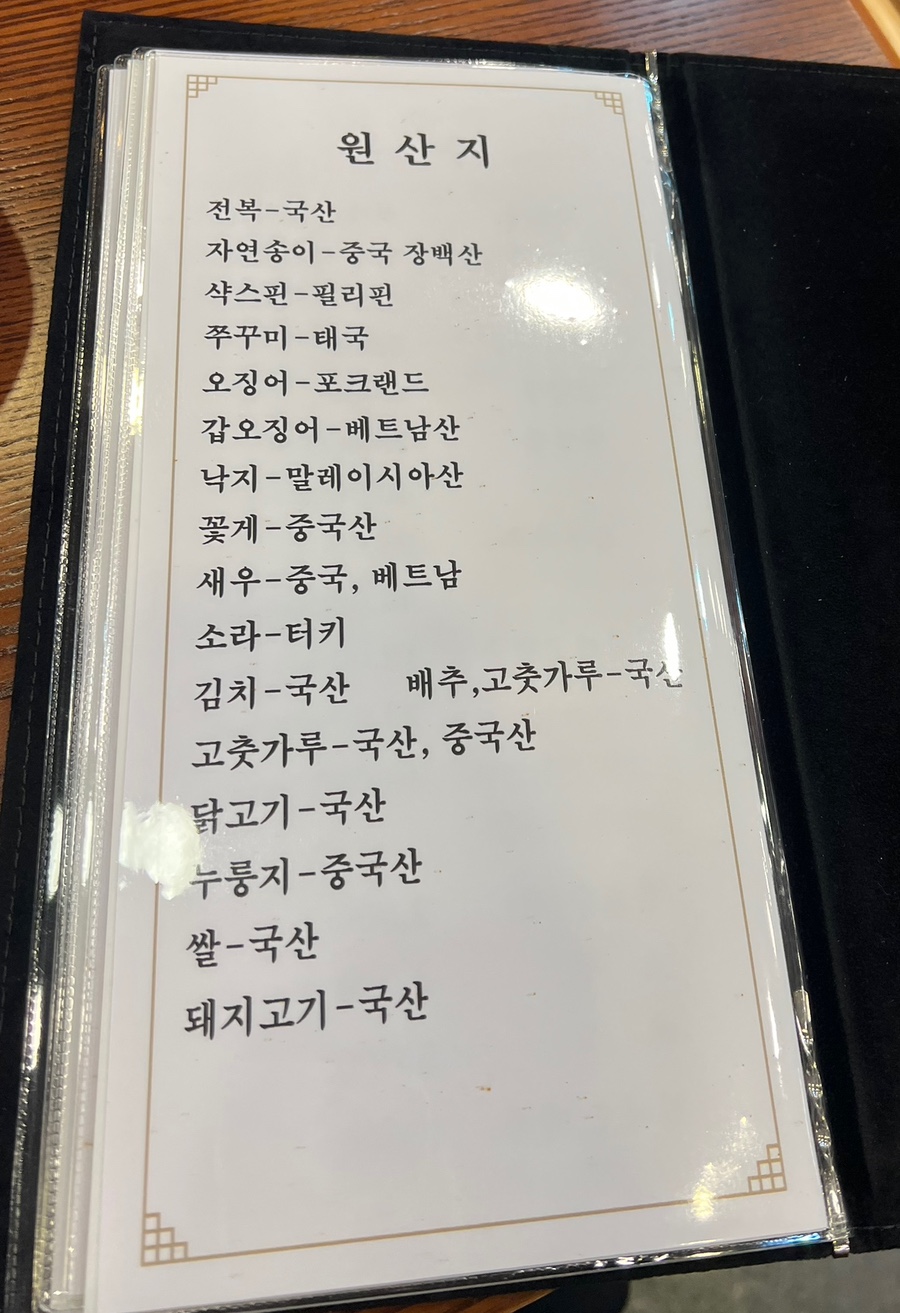 원 산 지
전복-국산
자연송이-중국 장백산
샥스핀-필리핀
쭈꾸미-태국
오징어-포크랜드
갑오징어-베트남산
낙지-말레이시아산
꽃게-중국산
새우-중국, 베트남
소라-터키
김치-국산 배추,고춧가루-국산
고춧가루-국산, 중국산
닭고기-국산
누룽지-중국산
쌀-국산
돼지고기-국산